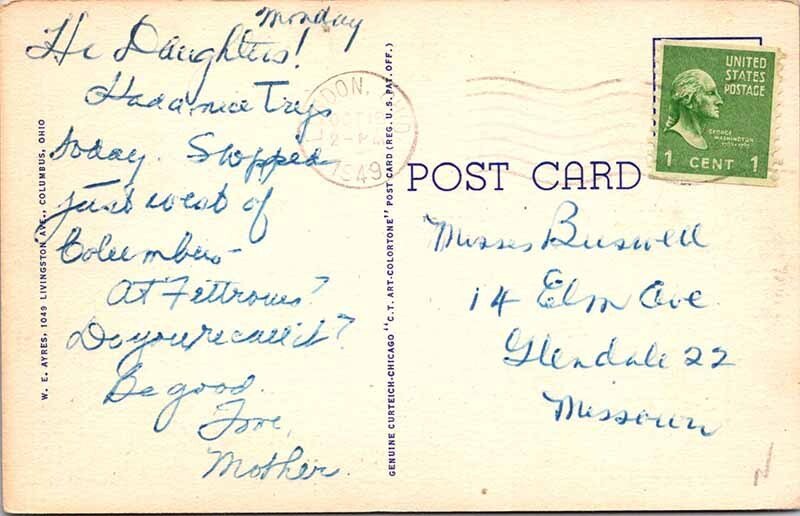 Monday
Hi Daughters!
Had a nice Trip
today. Stopped
just west of
Columbus -
At Fettrows?
Do you recall it?
Be good.
Love,
Mother.
W. E. AYRES, 1049 LIVINGSTON AVE., COLUMBUS, OHIO
GENUINE CURTEICH-CHICAGO "C.T. ART-COLORTONE" POST CARD (REG. U.S. PAT. OFF.)
OHIO
OCT
1949
UNITED
STATES
POSTAGE
GEORGE
WASHINGTON
1 CENT 1
POST CARD
Misses Buswell
14 Elm Ave
Glendale 22
Missouri